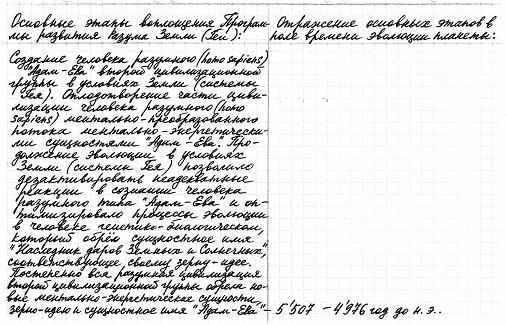 Основные этапы воплощения Програм-
мы развития Разума Земли (Геи):
Отражение основных этапов в
поле времени эволюции планеты:
Создание человека разумного (homo sapiens)
"Адам-Ева" второй цивилизационной
группы в условиях Земли (системы
Гея). Оплодотворение части циви-
лизации человека разумного (homo
sapiens) ментально-преобразованного
потока ментально-энергетически-
ми сущностями "Адам-Ева". Про-
должение эволюции в условиях
Земли (системы Гея) позволило
дезактивировать неадекватные
реакции в сознании человека
разумного типа "Адам-Ева" и оп-
тимизировало процессы эволюции
в человеке генетико-биологическом,
который обрёл сущностное имя
"Наследник даров Земных и Солнечных",
соответствующее своему зерну-идее.
Постепенно вся разумная цивилизация
второй цивилизационной группы обрела но-
вые ментально-энергетические сущности,
зерно-идею и сущностное имя "Адам-Ева" – 5'507 – 4'976 год до н.э..